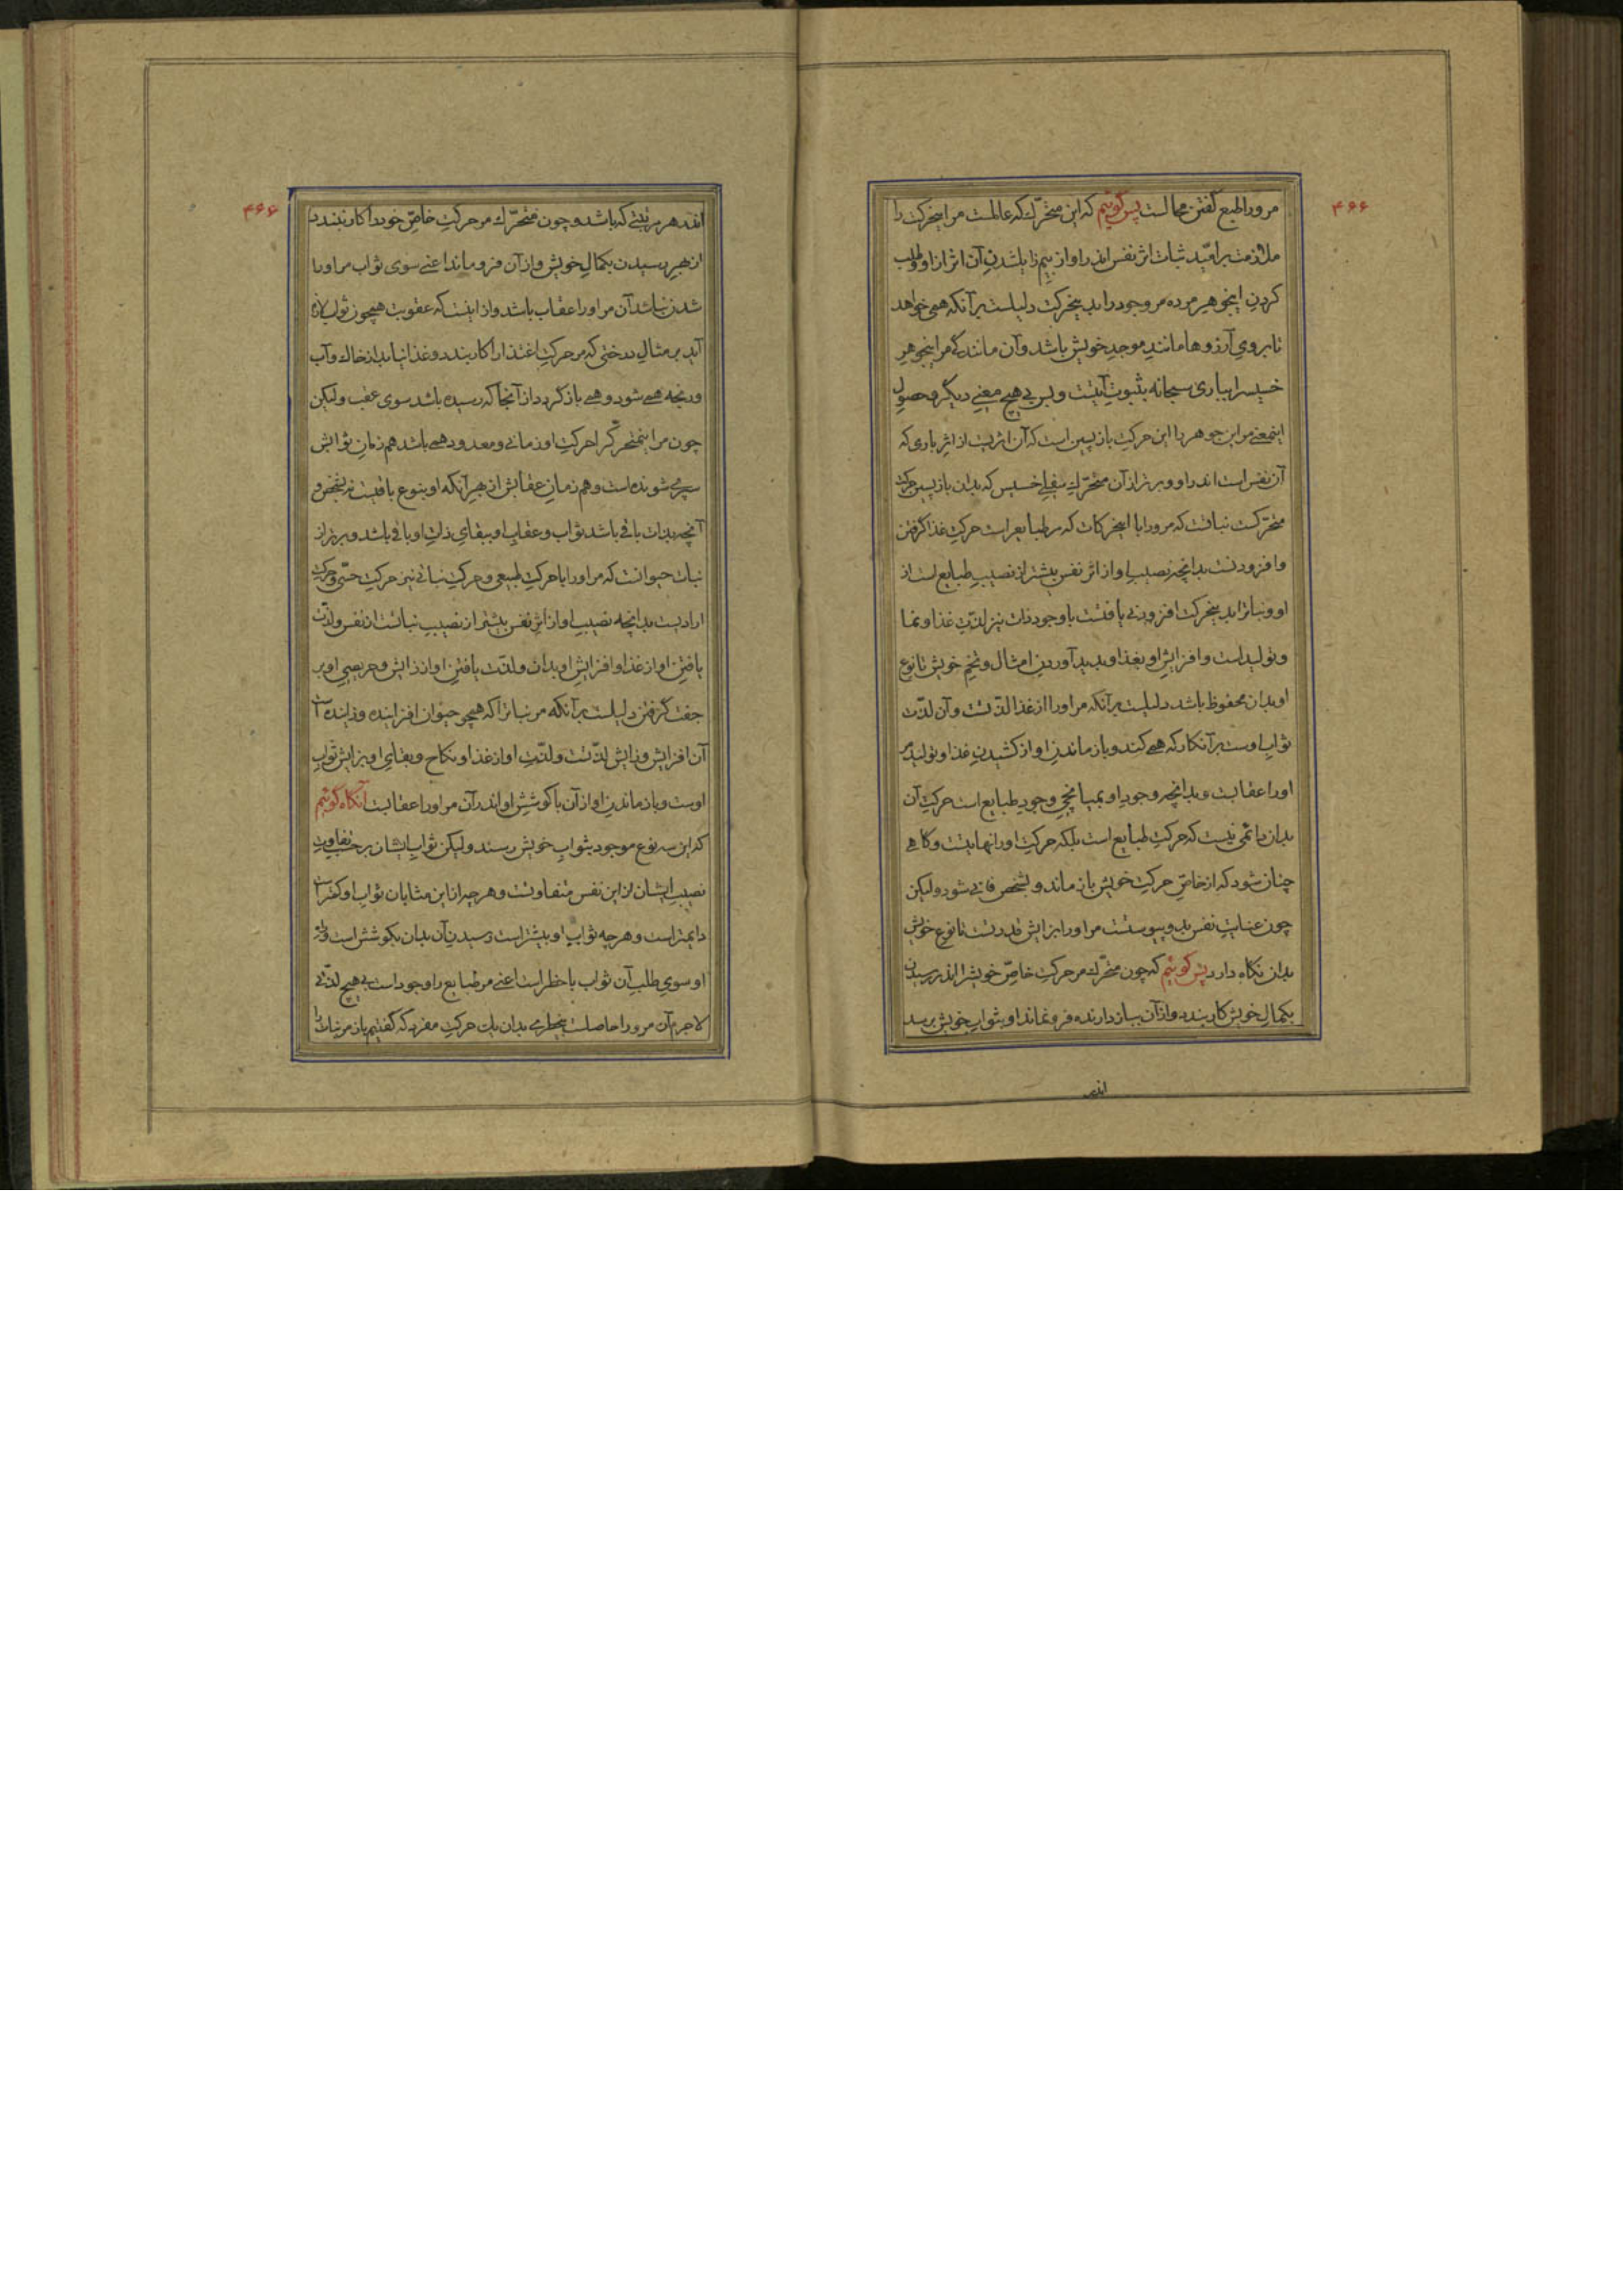 ۴۶۶
مرورا طبع گفتن محالست پس گوئیم که این متحرّک که عالمست مر اینحرکت را
ملازمت بر امّید ثبات اثر نفس اندر او از بیم زایل شدن آن اثر ازاو و طلب
کردن اینجوهر مرده مر وجود را بدینحرکت دلیلست بر آنکه همی خواهد
تا بروی آرزوها مانند موجد خویش باشد و آن مانندگی مر اینجوهر
خسیس را بباری سبحانه بثبوت آنیّت و بس بی هیچ معنی دیگر و حصول
اینمعنی مر این جوهر را این حرکت بازپسین است که آن اثریست از اثر باری که
آن نفس است اندر او و برتر از آن متحرّک سفلی خسیس که بدان بازپسین حرکت
متحرّکست نباتست که مرورا با اینحرکات که مر طبایع راست حرکت غذا گرفتن
و افزودنست بدانچه نصیب او از اثر نفس بیشتر از نصیب طبایع است از
او و نبات را بدینحرکت افزودنی یافتست با وجود ذات نیز لذّت غذا و نما
و تولید است و افزایش او بغذا و پدید آوردن امثال و تخم خویش تا نوع
او بدان محفوظ باشد دلیلست بر آنکه مر اورا از غذا لذّتست و آن لذّت
ثواب اوست بر آنکار که همی کند و باز ماندن او از کشیدن غذا و تولید مر
اورا عقابست و بدانچه وجود او بمیانجی وجود طبایع است حرکت آن
بدان دائمی نیست که حرکت طبایع است بلکه حرکت اورا نهایتست و گاهی
چنان شود که از خاصّ حرکت خویش باز ماند و بشخص فانی شود ولیکن
چون عنایت نفس بدو پیوستست مر اورا بزایش قدرتست تا نوع خویش
بدان نگاه دارد پس گوئیم که چون متحرّک مر حرکت خاصّ خویش را اندر رسیدن
بکمال خویش کار بندد و از آن بباز دارنده فرو نماند او بثواب خویش برسد
اندر
۴۶۶
اندر هر مرتبتی که باشد و چون متحرّک مر حرکت خاصّ خود را کار نبندد
از بهر رسیدن بکمال خویش و از آن فرو ماند اعنی سوی ثواب مر اورا
شدن نباشد آن مر اورا عقاب باشد و از اینست که عقوبت همچون ثواب لازم
آید بر مثال درختی که مر حرکت اغتذا را کار بندد و غذا نیابد از خاک و آب
و رنجه همی شود و همی باز گردد از آنجا که رسیده باشد سوی عقب ولیکن
چون مر اینمتحرّک را حرکت او زمانی و معدود همی باشد هم زمان ثوابش
سپری شونده است و هم زمان عقابش از بهر آنکه او بنوع باقیست نه بشخص و
آنچه بذات باقی باشد ثواب و عقاب او ببقای ذات او باقی باشد و برتر از
نبات حیوانست که مر اورا با حرکت طبیعی و حرکت نباتی نیز حرکت حسّی و حرکت
ارادیست بدانچه نصیب او از اثر نفس بیشتر از نصیب نباتست از نفس و لذّت
یافتن او از غذا و افزایش او بدان و لذّت یافتن او از زایش و حریصی او بر
جفت گرفتن دلیلست بر آنکه مر نبات را که همچو حیوان افزاینده و زاینده است
آن افزایش و زایش لذّتست و لذّت او از غذا و نکاح و بقای او بزایش ثواب
اوست و باز ماندن او از آن با کوشش او اندر آن مر اورا عقابست آنگاه گوئیم
که این سه نوع موجود بثواب خویش رسند ولیکن ثواب ایشان بر حسب تفاوت
نصیب ایشان از این نفس متفاوتست و هر چیز از این مثابان ثواب او کمتر است
دایمتر است و هر چه ثواب او بیشتر است رسیدن آن بدان بکوشش است و
او سوی طلب آن ثواب با خطر است اعنی مر طبایع را وجود است بی هیچ لذّتی
لاجرم آن مرورا حاصلست بیخطری بدان یک حرکت مفرد که گفتیم باز مر نبات را